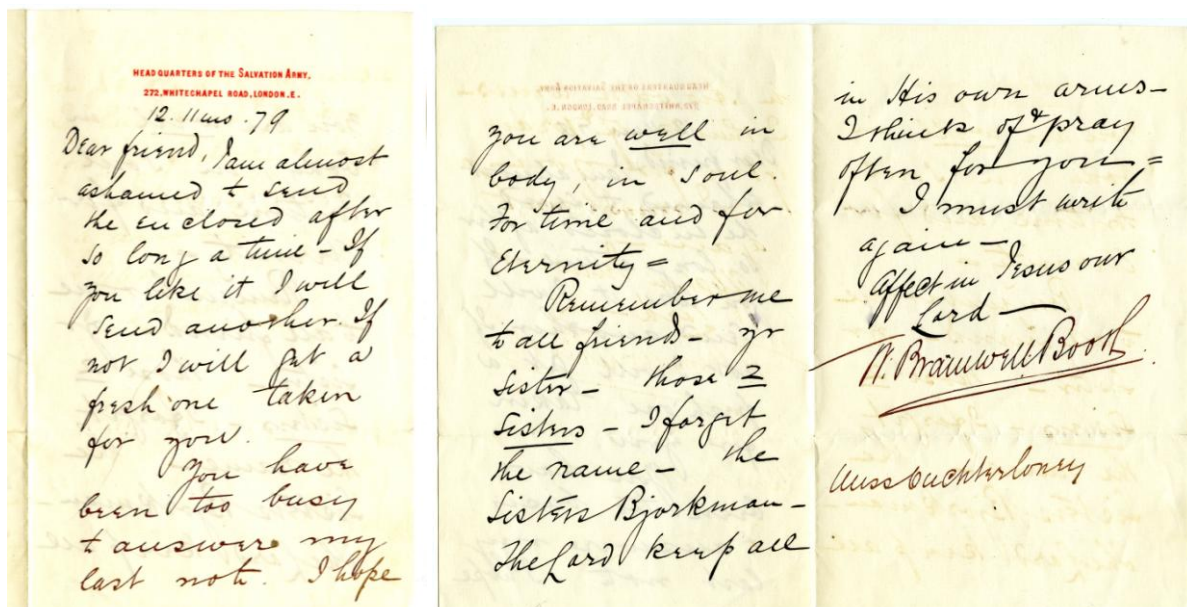 HEADQUARTERS OF THE SALVATION ARMY.
272, WHITECHAPEL ROAD, LONDON, E.
12. 11mo. 79
Dear friend, I am almost
ashamed to send
the enclosed after
so long a time - If
you like it I will
send another. If
not I will get a
fresh one taken
for you.
You have
been too busy
to answer my
last note. I hope
you are well in
body, in soul.
For time and for
Eternity =
Remember me
to all friends - yr
Sister - those 2
Sisters - I forget
the name - the
Sisters Bjorkman -
The Lord keep all
in His own arms -
I think of & pray
often for you =
I must write
again -
Affect in Jesus our
Lord -
W. Bramwell Booth.
Miss Ouchterloney